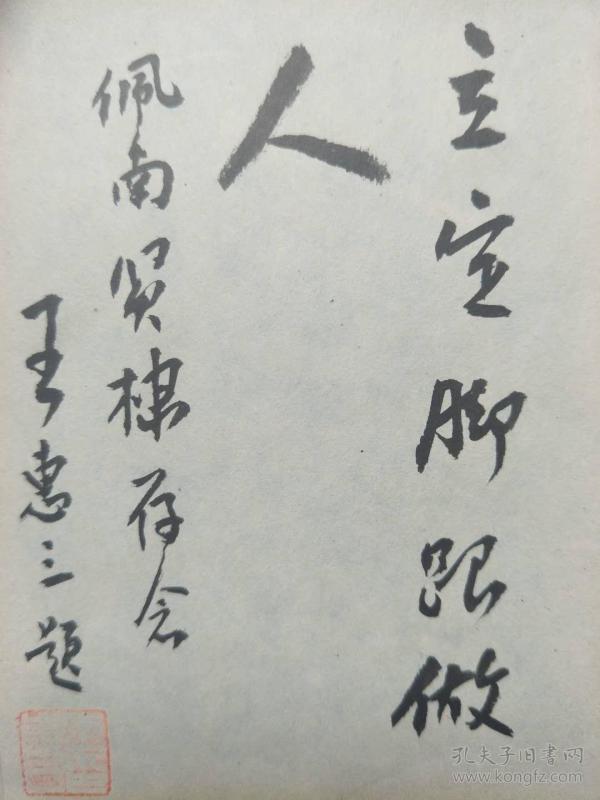 立定脚跟做
人
佩南贤棣存念
王惠三题
孔夫子旧书网
www.kongfz.com